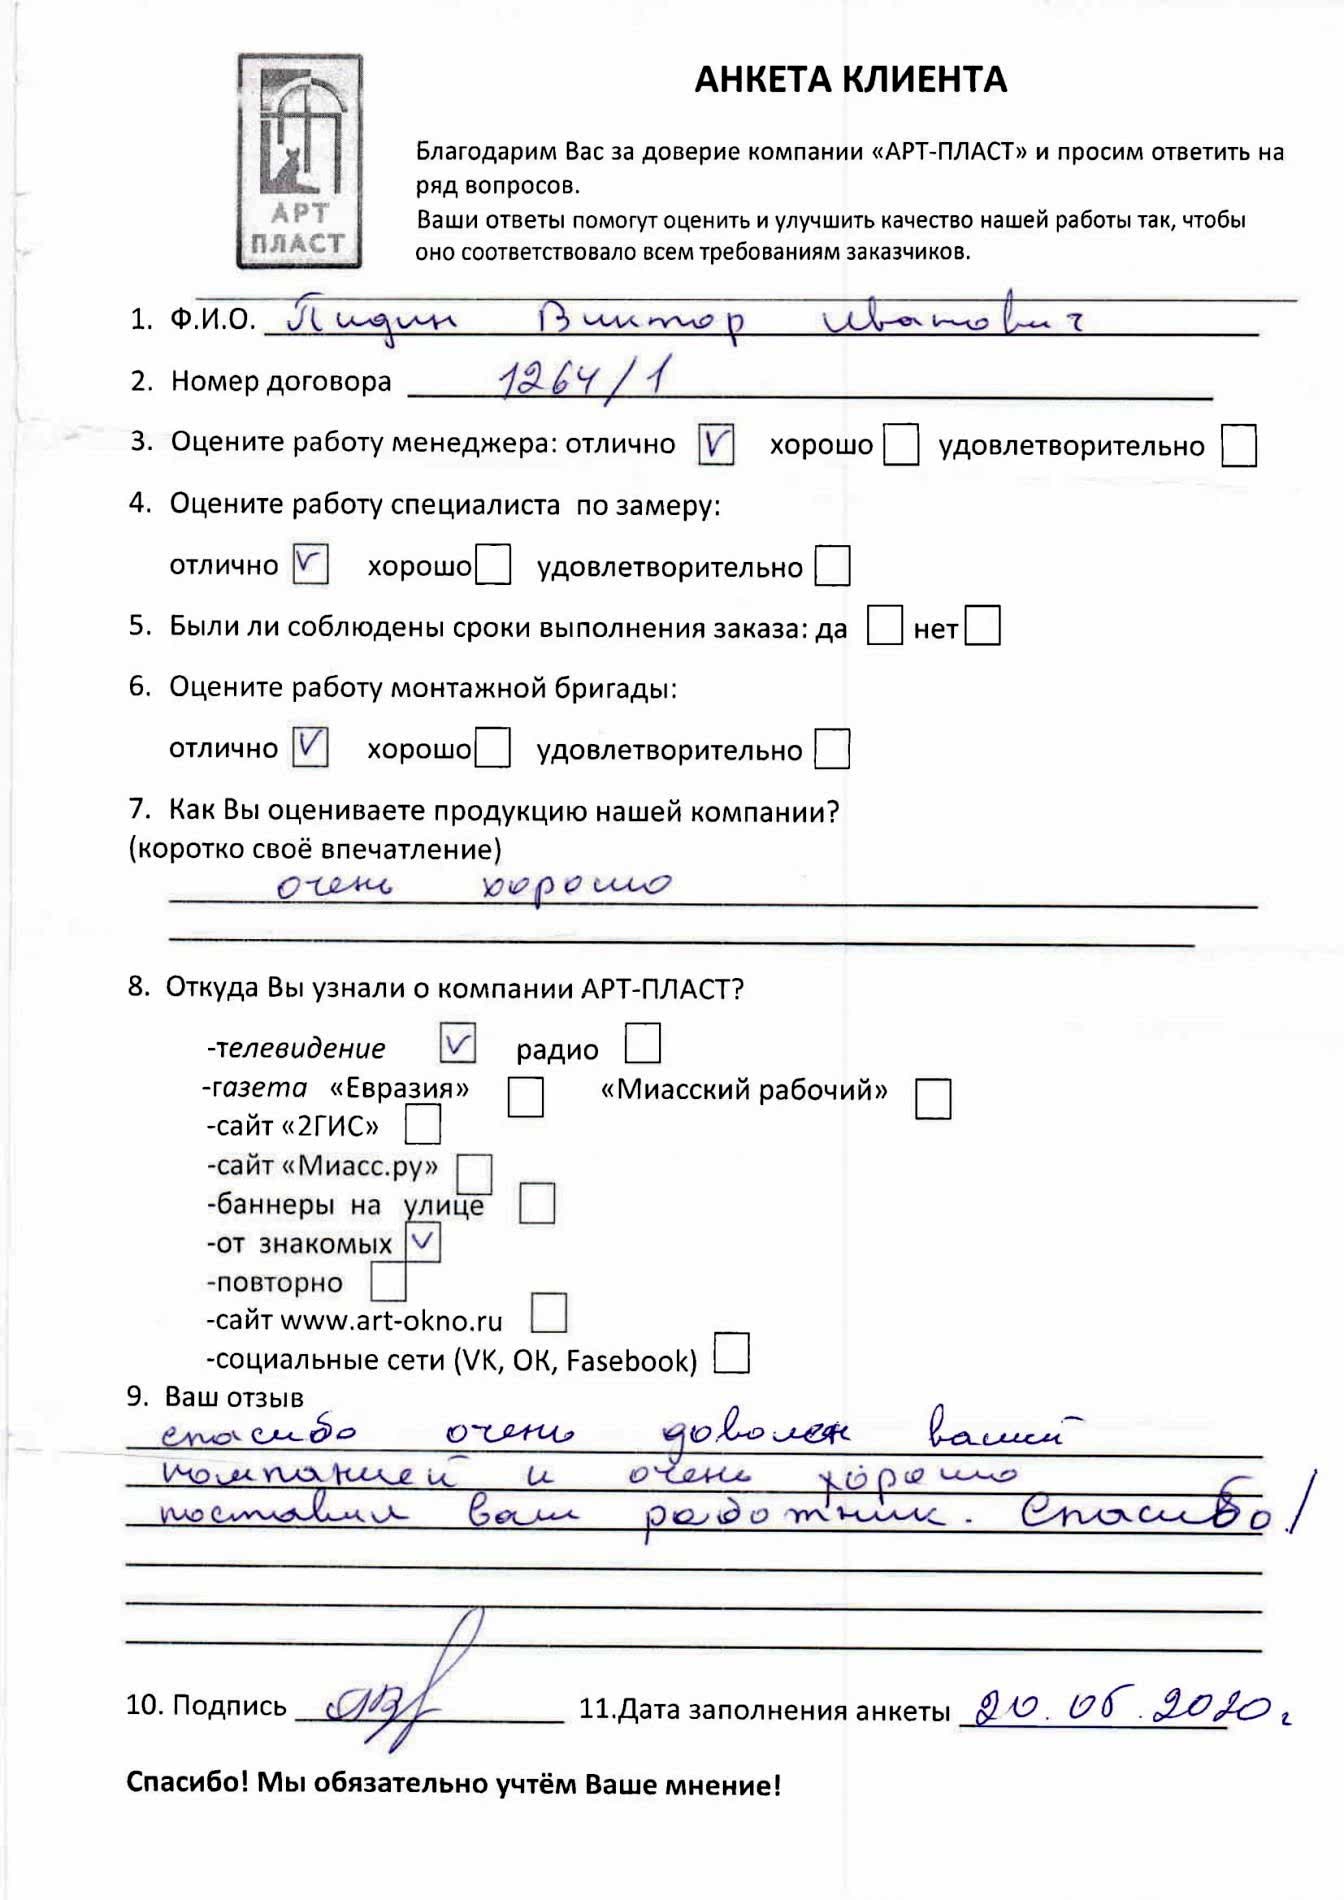 АРТ
ПЛАСТ
АНКЕТА КЛИЕНТА
Благодарим Вас за доверие компании «АРТ-ПЛАСТ» и просим ответить на
ряд вопросов.
Ваши ответы помогут оценить и улучшить качество нашей работы так, чтобы
оно соответствовало всем требованиям заказчиков.
1. Ф.И.О. Пидин Виктор Иванович
2. Номер договора 1264/1
3. Оцените работу менеджера: отлично V хорошо удовлетворительно
4. Оцените работу специалиста по замеру:
отлично V хорошо удовлетворительно
5. Были ли соблюдены сроки выполнения заказа: да нет
6. Оцените работу монтажной бригады:
отлично V хорошо удовлетворительно
7. Как Вы оцениваете продукцию нашей компании?
(коротко своё впечатление)
очень хорошо
8. Откуда Вы узнали о компании АРТ-ПЛАСТ?
-телевидение V радио
-газета «Евразия» «Миасский рабочий»
-сайт «2ГИС»
-сайт «Миасс.ру»
-баннеры на улице
-от знакомых V
-повторно
-сайт www.art-okno.ru
-социальные сети (VK, ОК, Fasebook)
9. Ваш отзыв
спасибо очень доволен вашей
компанией и очень хорошо
поставил ваш работник. Спасибо!
10. Подпись 11.Дата заполнения анкеты 20.06.2020г
Спасибо! Мы обязательно учтём Ваше мнение!